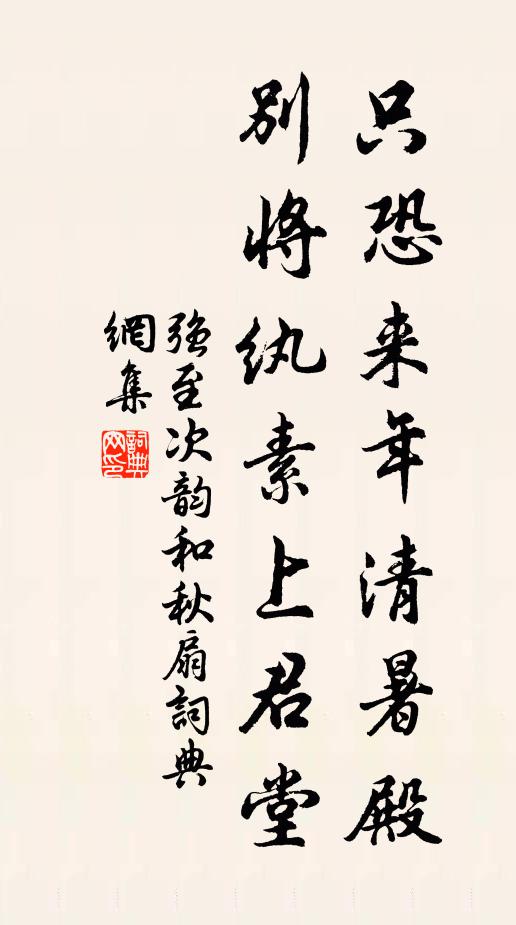 只恐来年清暑殿
别将纨素上君堂
强至次韵和秋扇詞典
網集
詞典網印